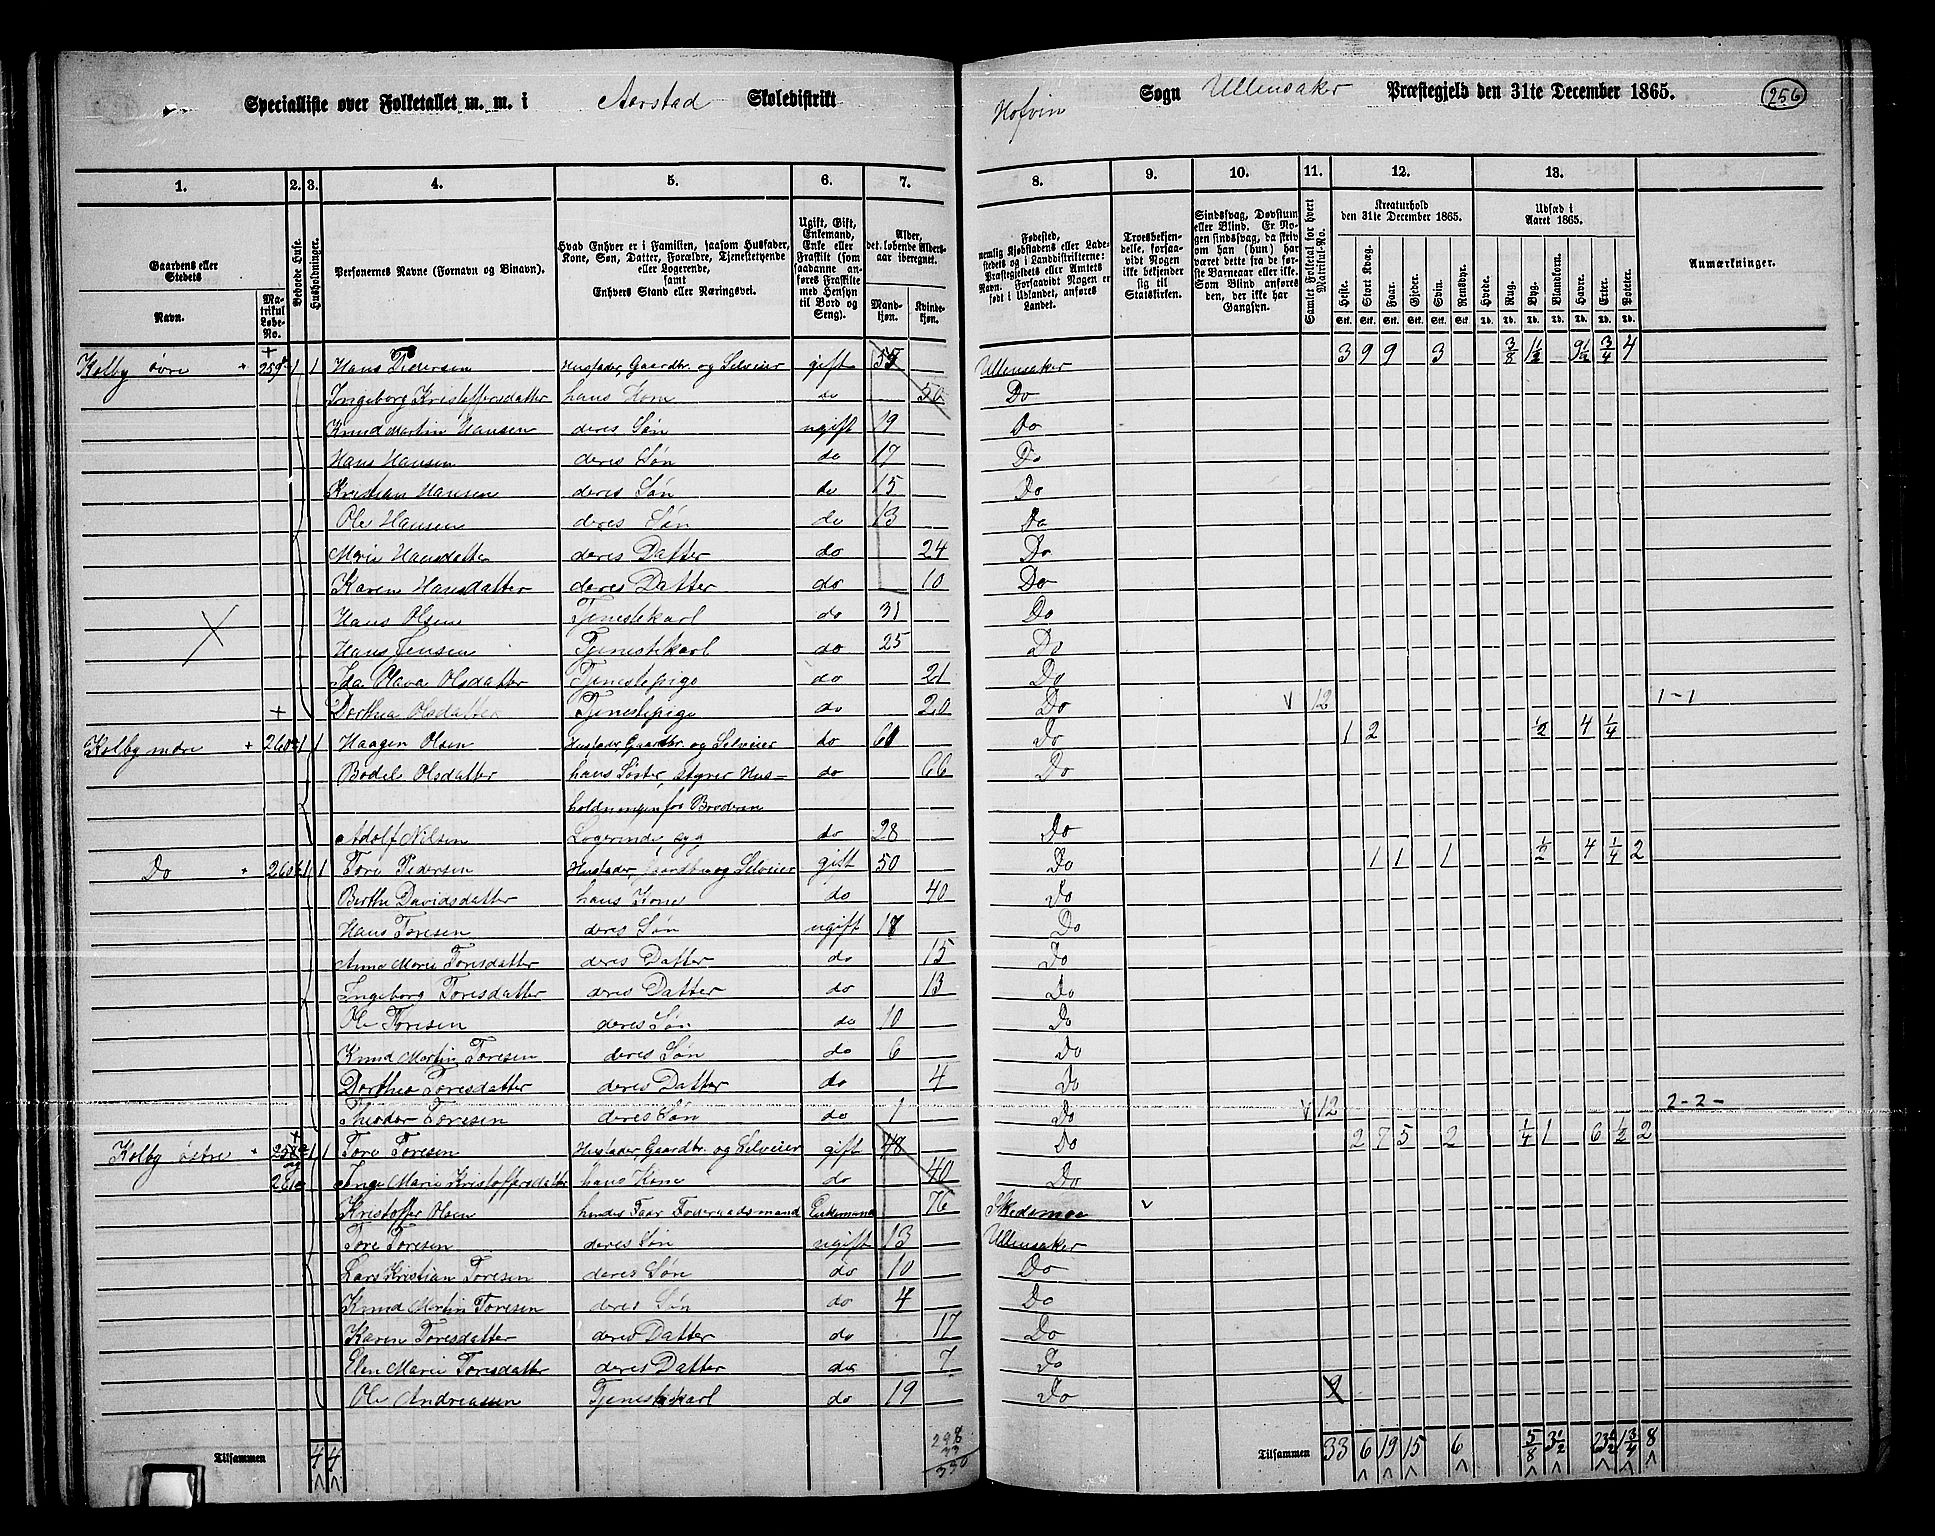 Specialliste over Folketallet m. m. i Aarstad Skoledistrikt Hofvin Sogn Ullensaker Præstegjeld den 31te December 1865. 256
1. 2. 3. 4. 5. 6. 7. 8. 9. 10. 11. 12. 13.
Gaardens eller Stedets Navn. Matrikul Løbe-No.
Beboede Huse.
Husholdninger.
Personernes Navne (Fornavn og Binavn).
Hvad Enhver er i Familien, saasom Husfader, Kone, Søn, Datter, Forældre, Tjenestetyende eller Logerende, samt Enhvers Stand eller Næringsvei.
Ugift, Gift, Enkemand, Enke eller Fraskilt (som saadanne anføres Fraskilte med Hensyn til Bord og Seng).
Alder, det løbende Aldersaar iberegnet. Mandkjøn. Kvindekjøn.
Fødested, nemlig Kjøbstadens eller Ladestedets og i Landdistrikterne: Præstegjeldets eller Amtets Navn. Forsaavidt Nogen er født i Udlandet, anføres Landet.
Troesbekjendelse, forsaavidt Nogen ikke bekjender sig til Statskirken.
Sindssvag, Døvstum eller Blind. Er Nogen sindssvag, da skrives om han (hun) har været dette fra de første Barneaar eller ikke. Som Blind anføres den, der ikke har Gangsyn.
Samlet Folketal for hvert Matrikul-No.
Kreaturhold den 31te December 1865. Heste. Stort Kvæg. Faar. Gjeder. Svin. Rensdyr.
Udsæd i Aaret 1865. Hvede. Rug. Byg. Blandkorn. Havre. Erter. Poteter.
Anmærkninger.
Kolby øvre 259 1 1 Hans Pedersen Husfader, Gaardbr. og Selveier gift 55 Ullensaker 3 9 9 3 3/8 1 1/2 9 1/2 3/4 4
Ingeborg Kristoffersdatter hans Kone do 50 Do
Knud Martin Hansen deres Søn ugift 19 Do
Hans Hansen deres Søn do 17 Do
Kristian Hansen deres Søn do 15 Do
Ole Hansen deres Søn do 13 Do
Marie Hansdatter deres Datter do 24 Do
Karen Hansdatter deres Datter do 10 Do
Hans Olsen Tjenestekarl do 31 Do
Hans Jensen Tjenestekarl do 25 Do
Ida Olava Olsdatter Tjenestepige do 21 Do
Dorthea Olsdatter Tjenestepige do 20 Do 12 1-1
Kolby nedre 260a 1 1 Haagen Olsen Husfader, Gaardbr. og Selveier do 61 Do 1 2 1/2 4 1/4
Bodil Olsdatter hans Søster, styrer Hus- do 66 Do
holdningen for Broderen
Adolf Nilsen Logerende, do 28 Do
Do 260b 1 1 Tore Pedersen Husfader, Gaardbr og Selveier gift 50 Do 1 1 1 1/2 4 1/4 2
Berthe Davidsdatter hans Kone do 40 Do
Hans Toresen deres Søn ugift 17 Do
Anne Marie Toresdatter deres Datter do 15 Do
Ingeborg Toresdatter deres Datter do 13 Do
Ole Toresen deres Søn do 10 Do
Knud Martin Toresen deres Søn do 6 Do
Dorthea Toresdatter deres Datter do 4 Do
Theodor Toresen deres Søn do 1 Do 12 2-2-
Kolby østre 258 1 1 Tore Toresen Husfader, Gaardbr. og Selveier gift 48 Do 2 7 5 2 1/4 1 6 1/2 2
og 261 Inge Marie Kristoffersdatter hans Kone do 40 Do
Kristoffer Olsen hendes Faar Føderaadsmand Enkemand 76 Skedsmoe
Tore Toresen deres Søn ugift 13 Ullensaker
Lars Kristian Toresen deres Søn do 10 Do
Knud Martin Toresen deres Søn do 4 Do
Karen Toresdatter deres Datter do 17 Do
Elen Marie Toresdatter deres Datter do 7 Do
Ole Andreassen Tjenestekarl do 19 Do 9
Tilsammen 4 4 298 33 330 Tilsammen 33 6 19 15 6 5/8 3 1/2 23 1/2 1 3/4 8